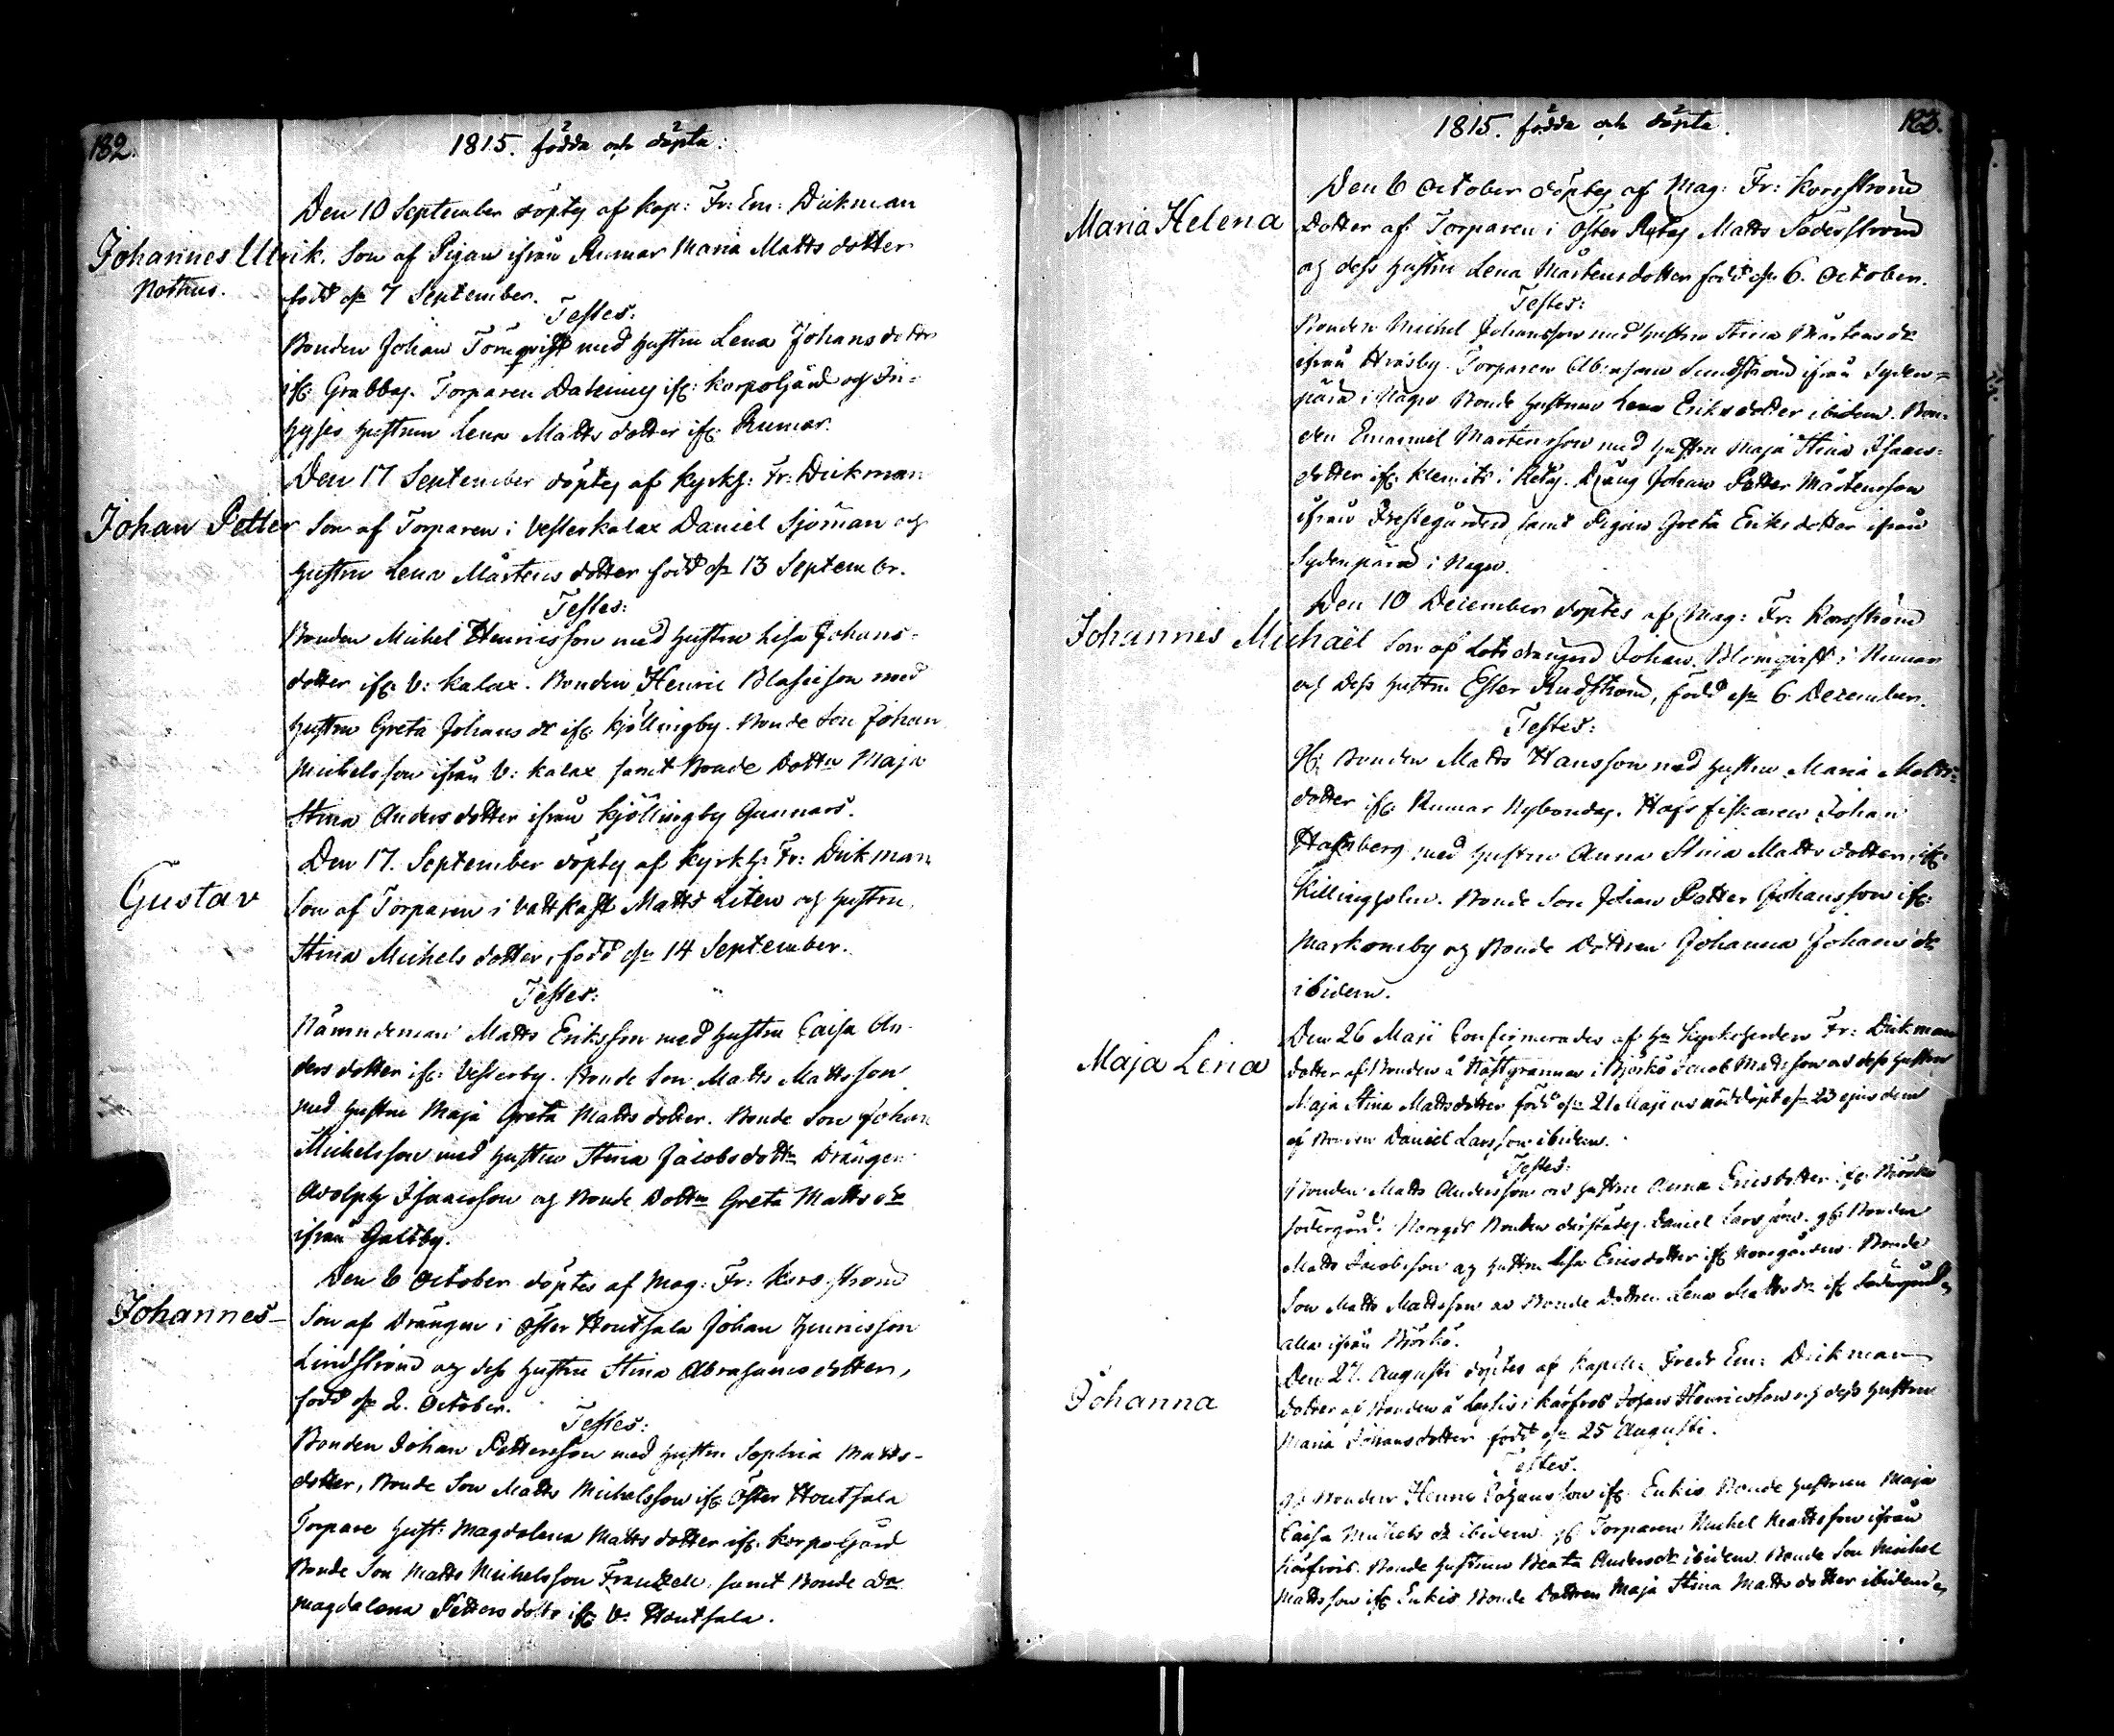 182.
1815. födda och döpta.
Den 10 September döptes af Kap: Fr: Em: Dickman
Johannes Ulrik. Son af Pigan ifrån Rumar Maria Matts dotter
Nothus.
född d. 7 September.
Testes:
Bonden Johan Törnqvist med hustru Lena Johans dotter
ifr. Grabbas. Torparen ifr: Korpogård och In=
hyses hustrun Lena Matts dotter ifr. Rumar.
Den 17 September döptes af Kyrkh: Fr: Dickman
Johan Petter Son af Torparen i Vesterkalax Daniel Sjöman och
hustru Lena Mårtens dotter född d. 13 Septembr.
Testes:
Bonden Michel Henricsson med hustru Lisa Johans=
dotter ifr. V: Kalax. Bonden Henric Blasieson med
hustru Greta Johans dr ifr. Kjöllingby. Bonde Son Johan
Michelsson ifrån V: Kalax samt Bonde Dottn Maja
Stina Anders dotter ifrån Kjöllingby Gunnars.
Den 17. September döptes af Kyrkh: Fr: Dickman
Gustav
Son af Torparen i Vattkast Matts Liten och hustru
Stina Michels dotter, född d. 14 September.
Testes:
Nämndeman Matts Eriksson med hustru Caisa An-
ders dotter ifr: Vesterby. Bonde Son Matts Mattsson
med hustru Maja Greta Matts dotter. Bonde Son Johan
Michelsson med hustru Stina Jacobsdottr Drängen
Adolph Isaacsson och Bonde Dottn Greta Matts dr
ifrån Galtby.
Den 6 October döptes af Mag: Fr: Korsström
Johannes - Son af Drängen i Öster Houtsala Johan Henricsson
Lindström och dess hustru Stina Abrahams dotter,
född d. 2. October.
Testes:
Bonden Johan Pettersson med hustru Sophia Matts-
dotter, Bonde Son Matts Michelsson ifr. Öster Houtsala
Torpare hust: Magdalena Matts dotter ifr. Korpogård
Bonde Son Matts Michelsson Frantzen, samt Bonde Dr
Magdalena Petters dottr ifr V: Houtsala.
1815. födda och döpta.
183.
Den 6 October döptes af Mag: Fr: Korsström
Maria Helena Dotter af Torparen i Öster Retas Matts Söderström
och dess hustru Lena Mårtensdotter född d. 6. October.
Testes:
Bonden Michel Johansson med hustru Stina Mårtens dr
ifrån Torparen Abraham Sundström ifrån Syden=
pärä i Nagu Bonde hustrun Lena Eriks dotter ibidem. Bon=
den Emanuel Mårtensson med hustru Maja Stina Isaacs=
dotter ifr. Klemets i Retas. Dräng Johan Petter Mårtensson
ifrån Prestegården samt Pigan Greta Eriks dotter ifrån
Sydenpärä i Nagu.
Den 10 December döptes af Mag: Fr: Korsström
Johannes Michaël Son af Lots drängen Johan Blomqvist i Rumar
och dess hustru Ester Rudström, född d. 6 December.
Testes:
Bonden Matts Hansson med hustru Maria Matts=
dotter ifr. Rumar Nybondas. Hafs fiskaren Johan
med hustru Anna Stina Matts dotter, ifr.
Killingholm. Bonde Son Johan Petter Johansson ifr.
Markomby och Bonde Dottren Johanna Johans dr
ibidem.
Den 26 Maji Confirmerades af Hr Kyrkoherden Fr: Dickman
Maja Lena dotter af Bonden å Västgrannas i Björkö Jacob Mattsson och dess hustru
Maja Stina Mattsdotter född d. 21 Maji och nöddöpt d. 23 ejusdem
af Bonden Daniel Larsson ibidem.
Testes:
Bonden Matts Andersson och hustru Anna Ericsdotter ifr. Björkö
södergård. Bonden därstädes Daniel Larsson. Bonden
Matts Jacobsson och hustru Lisa Ericsdotter ifr. Norrgården. Bonde
Son Matts Mattsson och Bonde Dottren Lena Matts dr ifr Södergård,
alla ifrån Björkö.
Den 27. Augusti döptes af Kapell: Fredr Em: Dickman
Johanna dotter af Bonden å i Kårfvos Johan Henricsson och dess hustru
Maria Johansdotter född d. 25 Augusti.
Testes.
Bonden Henric Johansson ifr. Enkis Bonde hustrun Maja
Caisa Michels dr ibidem. Torparen Michel Mattsson ifrån
Bonde hustrun Beata Anders dr ibidem. Bonde Son Michel
Mattsson ifr Enkis Bonde Dottren Maja Stina Matts dotter ibidem